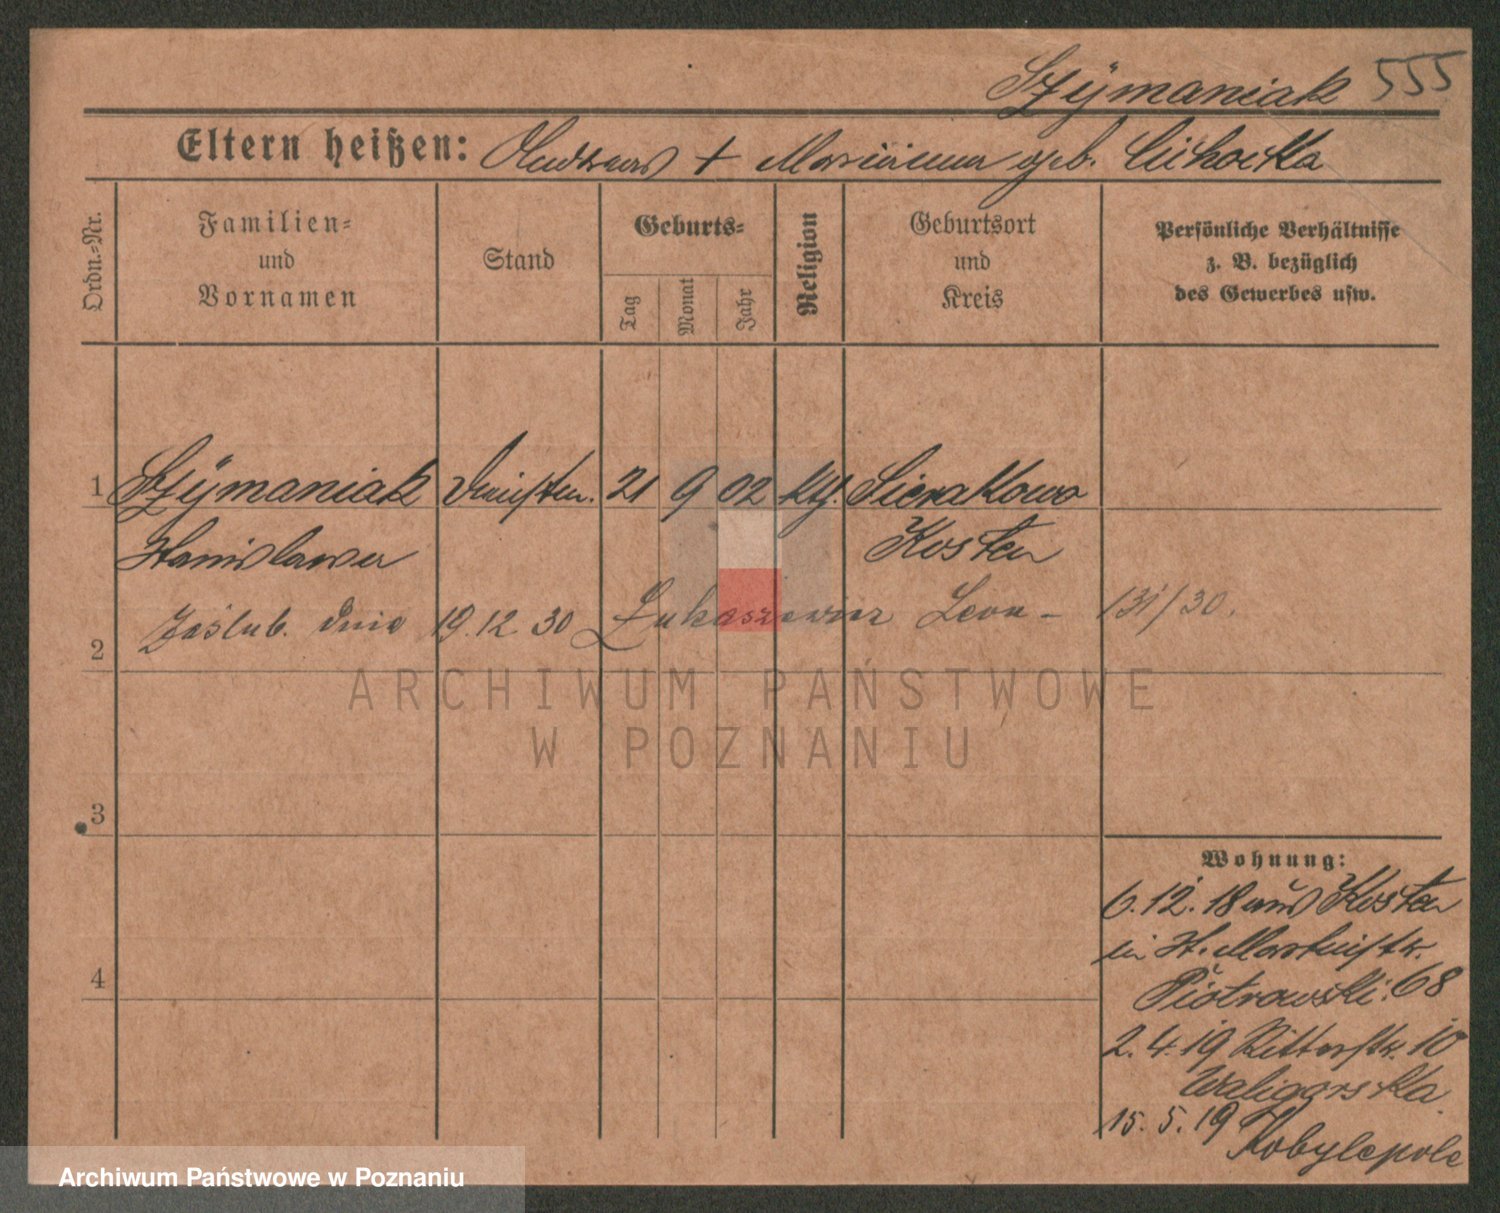 Szÿmaniak 555
Eltern heißen: Andreas + Marianna geb. Cichocka
Ordn.-Nr.
Familien-
und
Vornamen
Stand
Geburts-
Tag
Monat
Jahr
Religion
Geburtsort
und
Kreis
Persönliche Verhältnisse
z. B. bezüglich
des Gewerbes usw.
1 Szÿmaniak 21 9 02 kth. Sierakowo
Stanislawa Kosten
Zaślub. dnia 19.12.30 Łukaszewicz Leon - 131/30.
2
3
4
Wohnung:
6.12.18 aus Kosten
in St. Martinstr.
Piotrowski: 68
2.4.19 Ritterstr. 10
Waligorska.
15.5.19 Kobylepole
ARCHIWUM PAŃSTWOWE
W POZNANIU
Archiwum Państwowe w Poznaniu